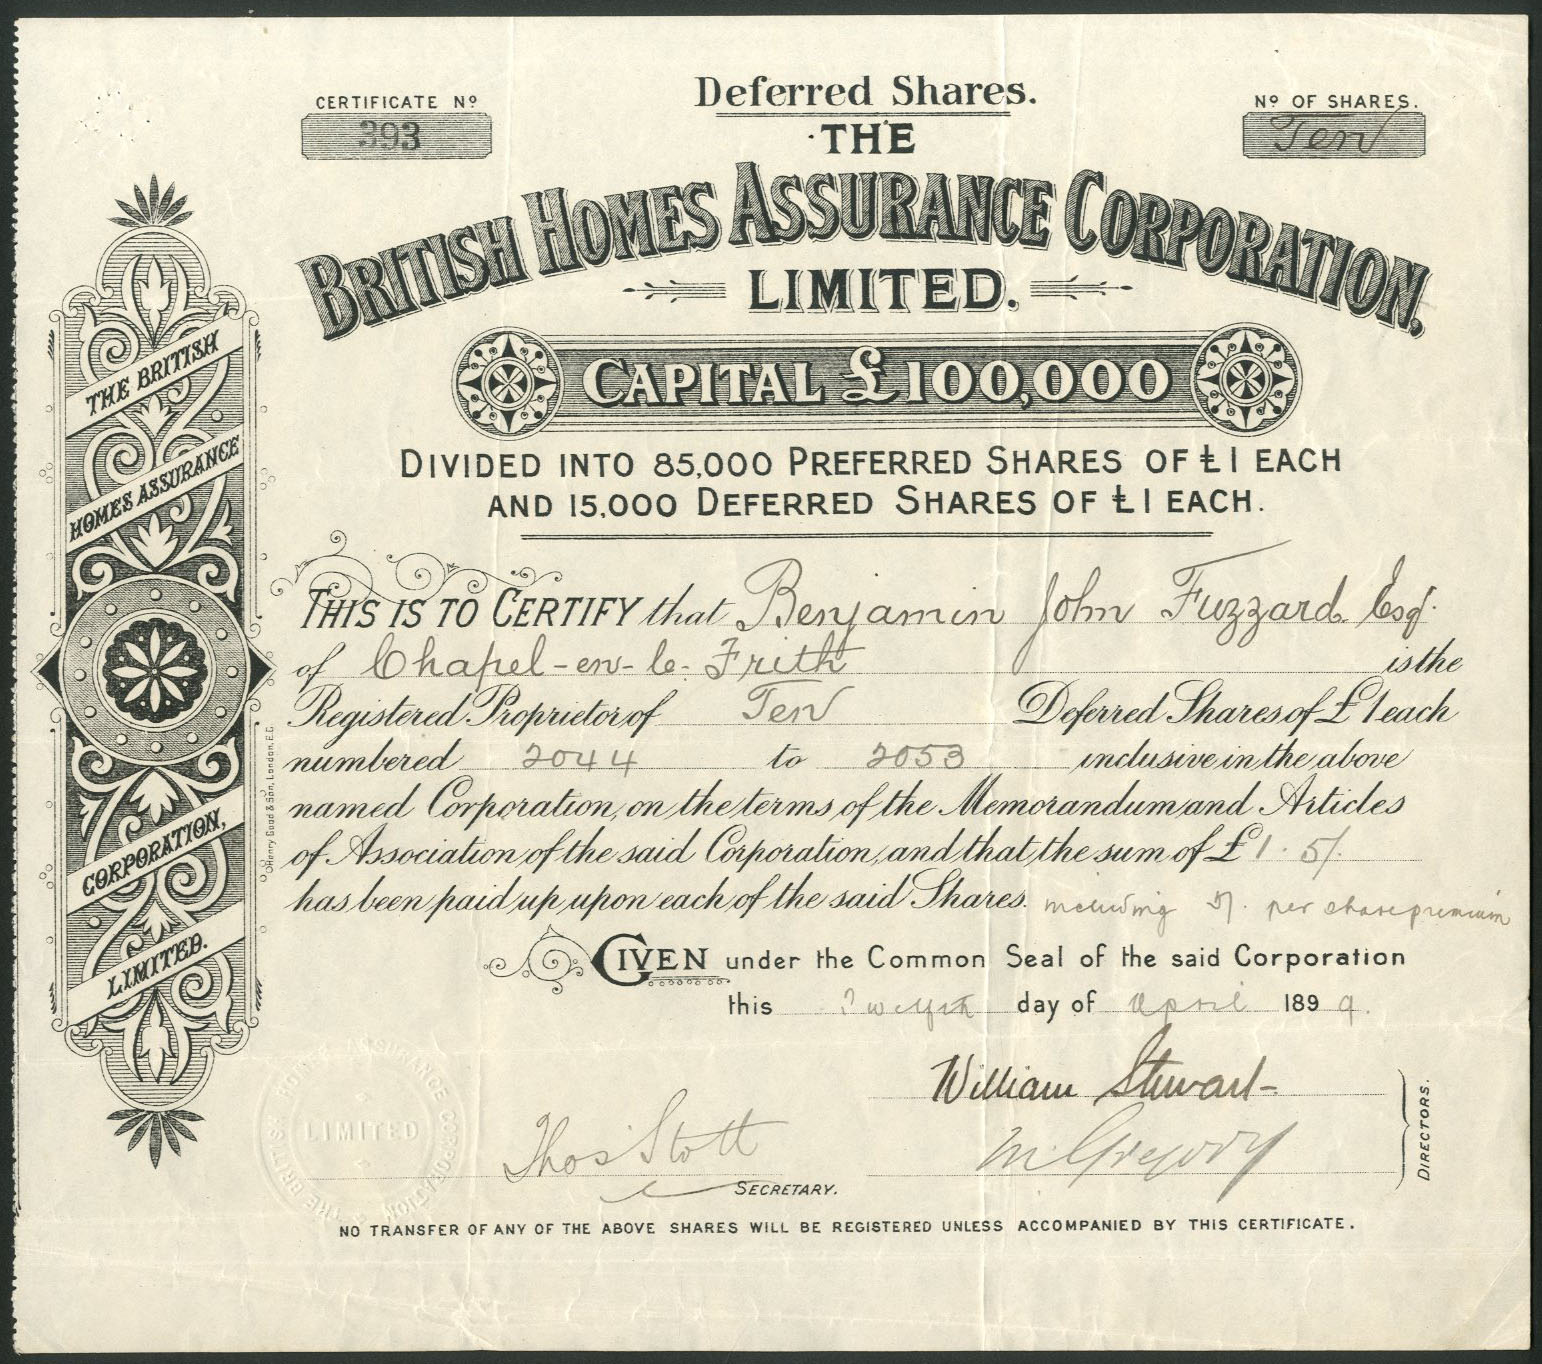 Deferred Shares.
CERTIFICATE Nº
393
Nº OF SHARES.
Ten
THE
BRITISH HOMES ASSURANCE CORPORATION,
LIMITED.
CAPITAL £100,000
DIVIDED INTO 85,000 PREFERRED SHARES OF £1 EACH
AND 15,000 DEFERRED SHARES OF £1 EACH.
THIS IS TO CERTIFY that Benjamin John Fuzzard Esqr.
of Chapel-en-le-Frith is the
Registered Proprietor of Ten Deferred Shares of £1 each
numbered 2044 to 2053 inclusive in the above
named Corporation, on the terms of the Memorandum and Articles
of Association of the said Corporation, and that the sum of £1. 5/.
has been paid up upon each of the said Shares. including 5/. per share premium
GIVEN under the Common Seal of the said Corporation
this Twelfth day of April 1899.
William Stewart
Thos Stott
M Gregory
DIRECTORS.
SECRETARY.
NO TRANSFER OF ANY OF THE ABOVE SHARES WILL BE REGISTERED UNLESS ACCOMPANIED BY THIS CERTIFICATE.
THE BRITISH
HOMES ASSURANCE
CORPORATION,
LIMITED.
Henry Good & Son, London, E.C.
THE BRITISH HOMES ASSURANCE CORPORATION
LIMITED